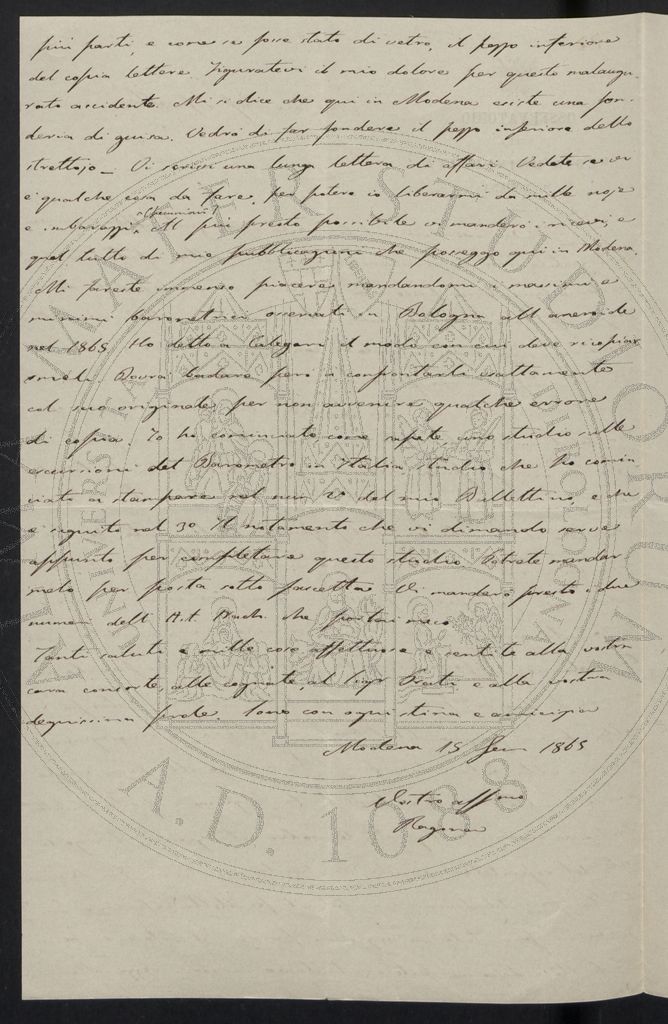 più parti, e come se fosse stato di vetro, il pezzo inferiore
del copia lettere. Figuratevi il mio dolore per questo malaugu
rato accidente. Mi si dice che qui in Modena esiste una fon-
deria di guisa. Vedrò di far fondere il pezzo inferiore dello
strettojo_ Vi scrissi una lunga lettera di affari. Vedete se vi
è qualche cosa da fare, per potere io liberarmi da mille noje
e imbarazzi. Al più presto possibile vi manderò i
tutto di mie pubblicazioni che posseggo qui in Modena.
Mi fareste immenso piacere mandandomi i massimi e
minimi barometrici osservati in Bologna all'aneroide
nel 1865. Ho detto a Calegari il modo con cui deve ricopiar
meli. Dovrà badare però a confrontarli esattamente
col suo originale per non avvenire qualche errore
di copia. Io ho cominciato come sapete uno studio sulle
escursioni del Barometro in Italia studio che ho comin
ciato a stampare nel num 2º del mio Bullettino, e che
è seguito nel 3º. Il notamento che vi dimando serve
appunto per completare questo studio. Potrete mandar
melo per posta sotto fascetta. Vi manderò presto i due
numeri dell' Ast. Nach. che portai meco
Tanti saluti e mille cose affettuose e sentite alla vostra
cara consorte, alle cognate, al Sigr e alla vostra
degnissima prole. Sono con ogni stima e amicizia
Modena 15 Gen 1865
Vostro affmo
Ragona
ALMA MATER STUDIORUM
A.D. 1088